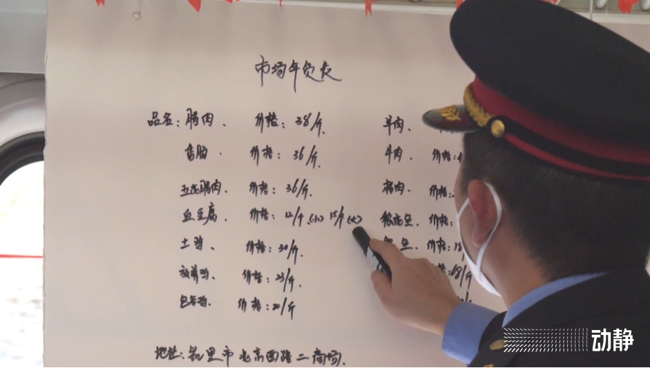 市场年货表
品名：腊肉、 价格：38/斤 羊肉、
香肠 价格：36/斤、 牛肉、 价格：
五花腊肉、 价格：36/斤、 猪肉、 价格：
血豆腐、 价格：12/斤(小) 15/斤(大) 鱼、 价格：
土鸡、 价格：30/斤、 鱼、价格：18
价格：23/斤 18/斤
价格：20/斤
地址：凯里市北京西路二商场、
动静